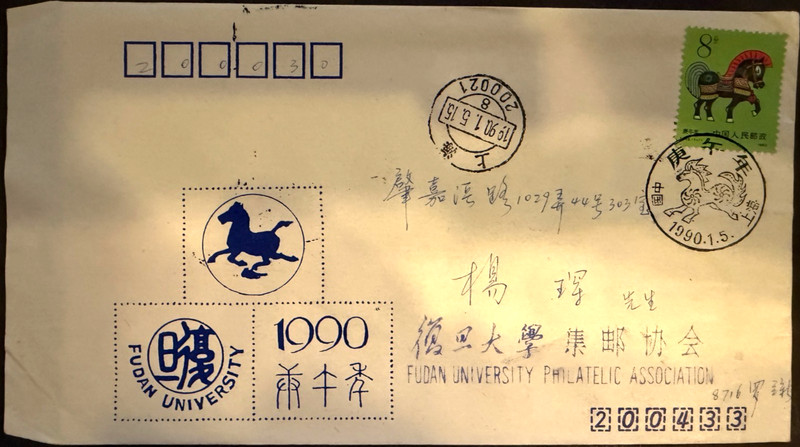 200030
8分
庚午年
中国人民邮政
1990.1.5.15
8
200021
上海
庚午年
中国 上海
1990.1.5.
肇嘉浜路1029弄44号303室
楊 琿 先生
1990
庚午年
復旦
FUDAN UNIVERSITY
復旦大學集邮协会
FUDAN UNIVERSITY PHILATELIC ASSOCIATION
8716 罗
200433